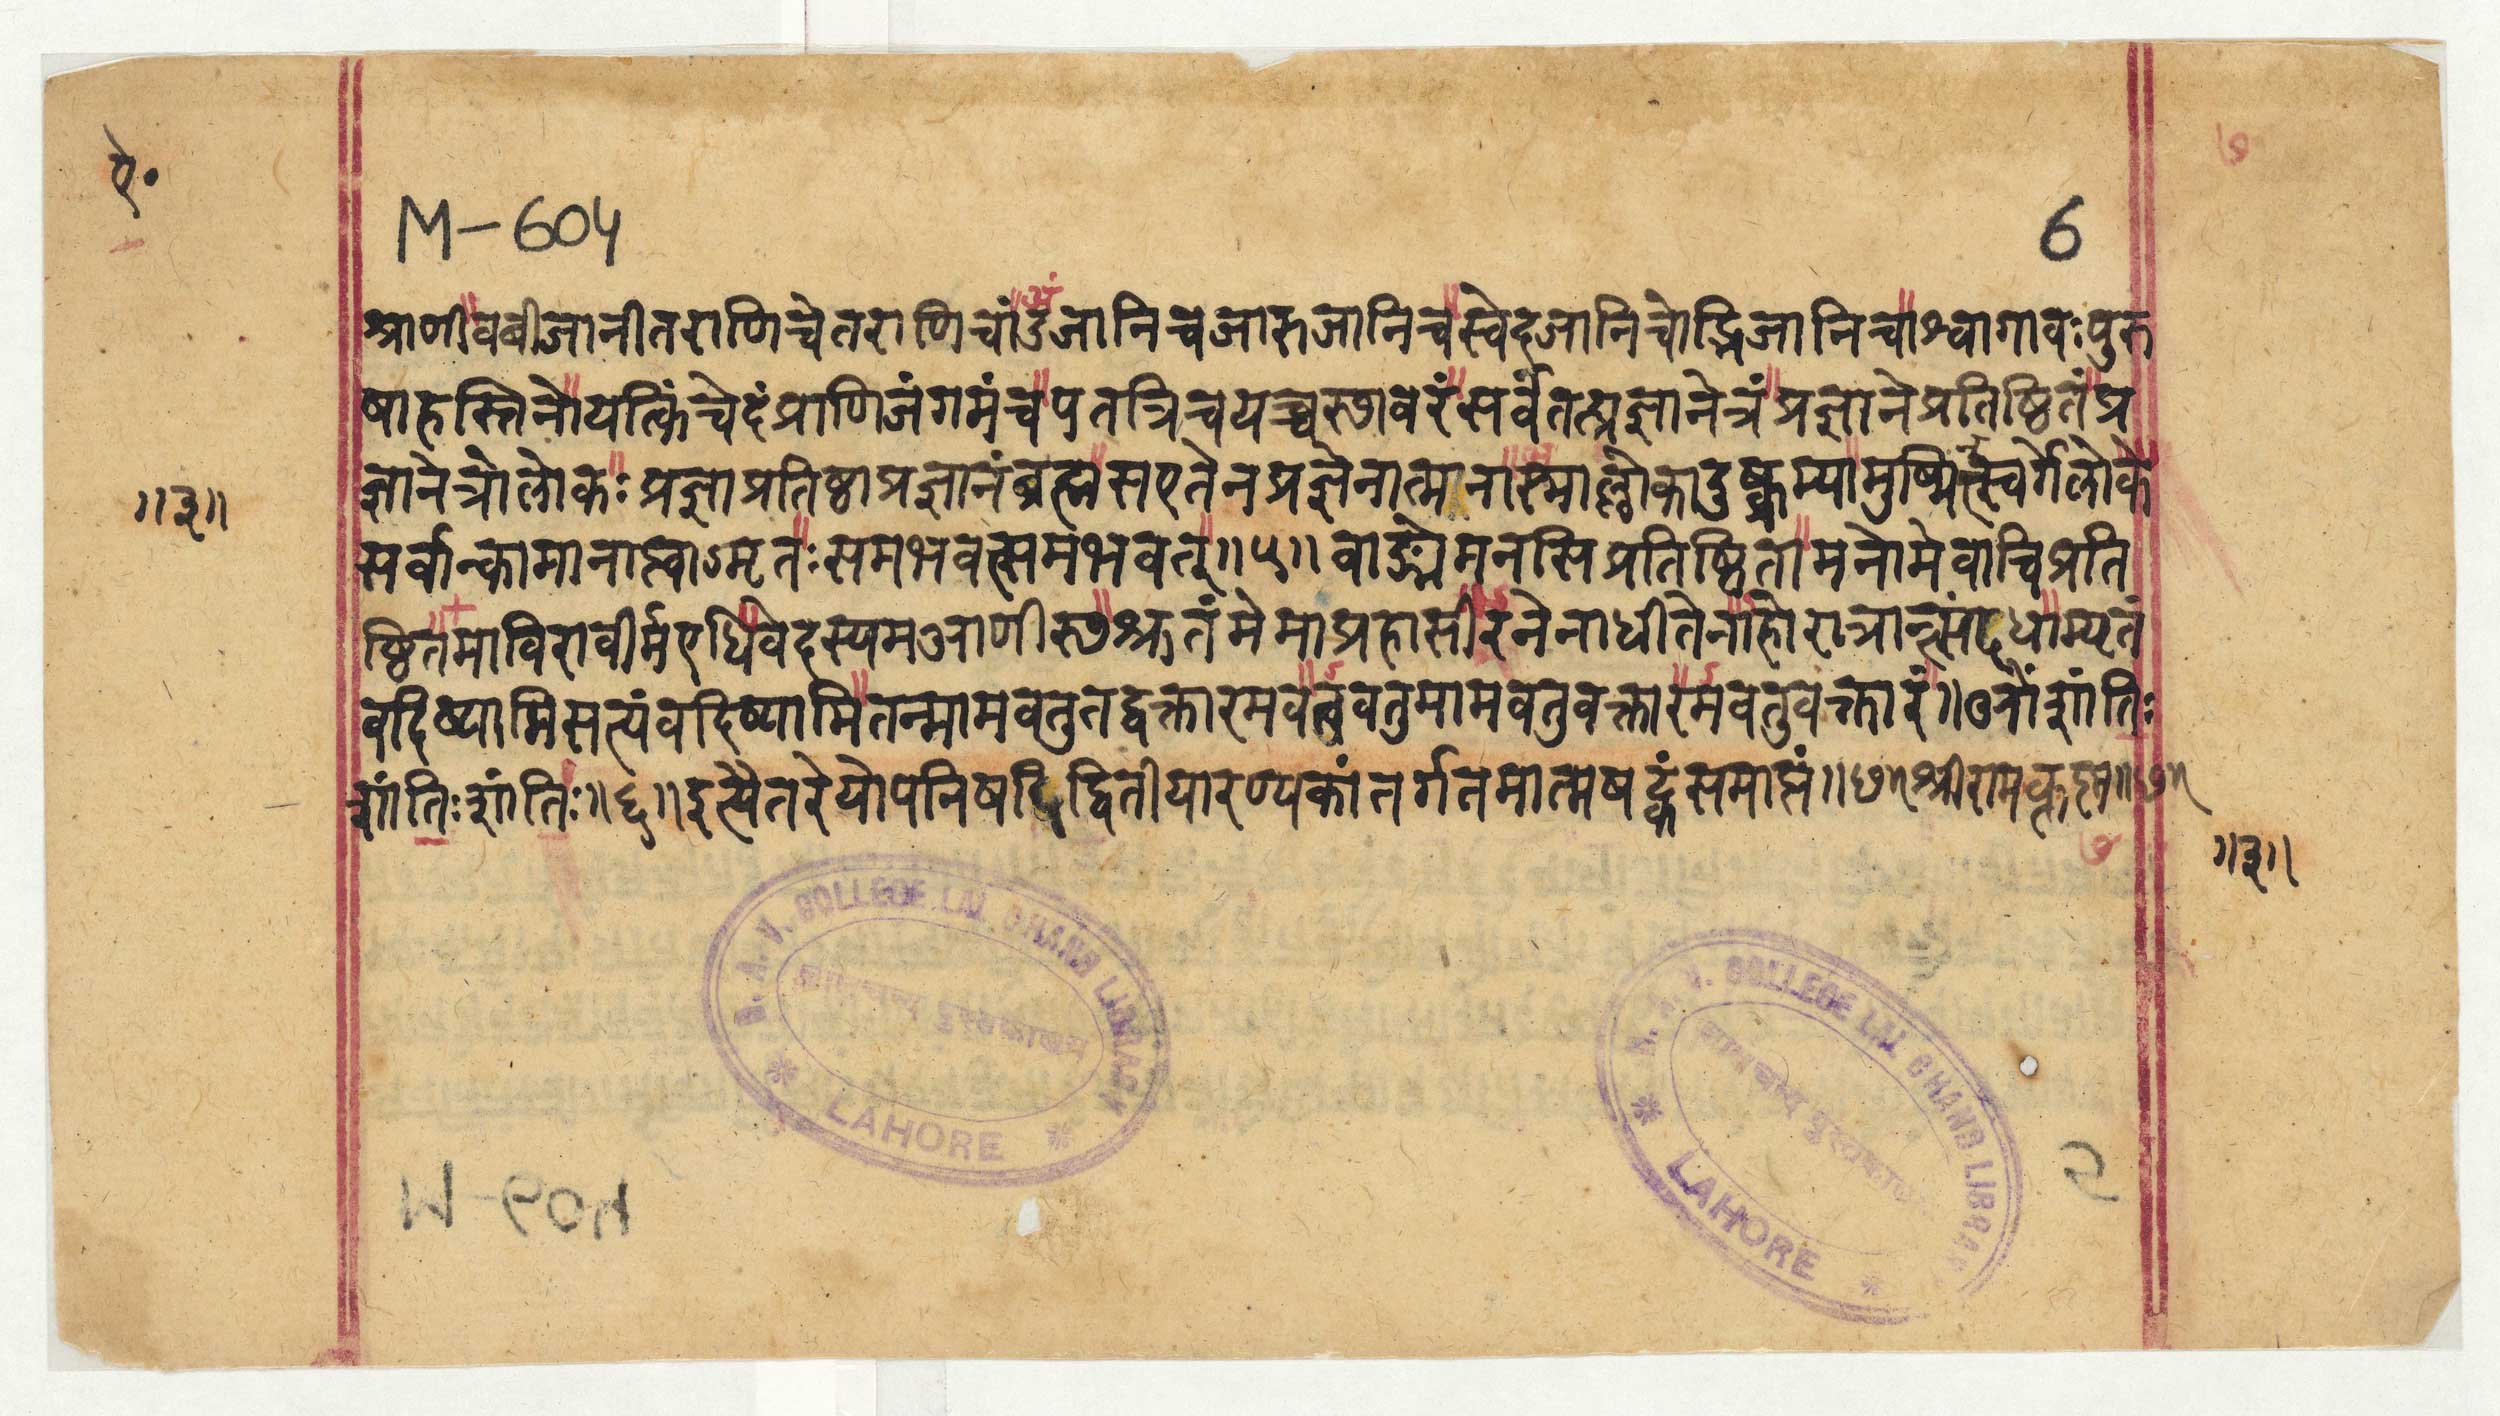 ऐ॰
M-604
6
७
श्राणीवबीजानीतराणिचेतराणिचांडजानिचजारुजानिचस्वेदजानिचोद्भिजानिचाश्वागावःपुरु
षाहस्तिनोयत्किंचेदंप्राणिजंगमंचपतत्रिचयच्चस्थावरंसर्वंतत्प्रज्ञानेत्रंप्रज्ञानेप्रतिष्ठितंप्र
ज्ञानेत्रोलोकःप्रज्ञाप्रतिष्ठाप्रज्ञानंब्रह्मसएतेनप्रज्ञेनात्मानास्माल्लोकादुत्क्रम्यामुष्मिन्स्वर्गेलोके
॥३॥
सर्वान्कामानाप्त्वाऽमृतःसमभवत्समभवत्॥५॥वाङ्मेमनसिप्रतिष्ठितामनोमेवाचिप्रति
ष्ठितमाविरावीर्मएधिवेदस्यमआणीस्थःश्रुतंमेमाप्रहासीरनेनाधीतेनाहोरात्रान्त्संदधाम्यृतं
वदिष्यामिसत्यंवदिष्यामितन्मामवतुतद्वक्तारमवत्ववतुमामवतुवक्तारमवतुवक्तारं॥ओंशांतिः
शांतिःशांतिः॥६॥इत्यैतरेयोपनिषदिद्वितीयारण्यकांतर्गतमात्मषट्कंसमाप्तं॥छ॥श्रीरामकृष्ण॥छ॥
७
॥३॥
D. A. V. COLLEGE LAL CHAND LIBRARY
लालचन्द पुस्तकालय
* LAHORE *
D. A. V. COLLEGE LAL CHAND LIBRARY
लालचन्द पुस्तकालय
* LAHORE *